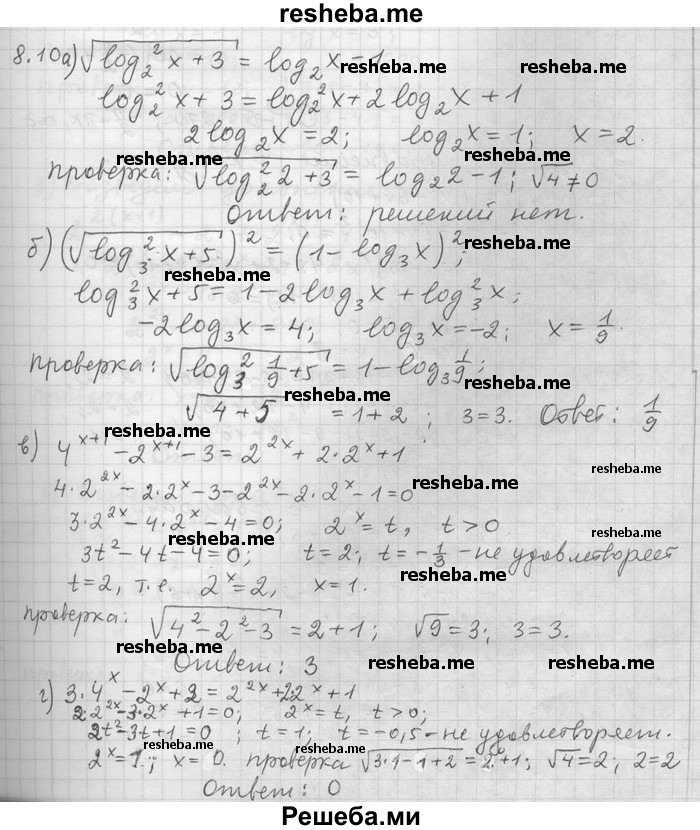 resheba.me
8.10а) √(log₂²x + 3) = log₂x - 1 resheba.me
log₂²x + 3 = log₂²x + 2 log₂x + 1
2 log₂x = 2; log₂x = 1; x = 2.
resheba.me resheba.me
проверка: √(log₂²2 + 3) = log₂2 - 1; √4 ≠ 0
Ответ: решений нет.
б) (√(log₃²x + 5))² = (1 - log₃x)²;
resheba.me
log₃²x + 5 = 1 - 2 log₃x + log₃²x;
-2 log₃x = 4; log₃x = -2; x = 1/9.
resheba.me resheba.me
проверка: √(log₃² 1/9 + 5) = 1 - log₃ 1/9;
resheba.me
√(4 + 5) = 1 + 2; 3 = 3. Ответ: 1/9
resheba.me
в) 4ˣ⁺¹ - 2ˣ⁺¹ - 3 = 2²ˣ + 2·2ˣ + 1
resheba.me
4·2²ˣ - 2·2ˣ - 3 - 2²ˣ - 2·2ˣ - 1 = 0 resheba.me
3·2²ˣ - 4·2ˣ - 4 = 0; 2ˣ = t, t > 0
resheba.me
3t² - 4t - 4 = 0; t = 2; t = -1/3 - не удовлетворяет
t = 2, т.е. 2ˣ = 2, x = 1. resheba.me
проверка: √(4² - 2² - 3) = 2 + 1; √9 = 3; 3 = 3.
resheba.me
Ответ: 3 resheba.me resheba.me
г) 3·4ˣ - 2ˣ + 2 = 2²ˣ + 2·2ˣ + 1
2·2²ˣ - 3·2ˣ + 1 = 0; 2ˣ = t, t > 0;
2t² - 3t + 1 = 0; t = 1; t = -0,5 - не удовлетворяет.
resheba.me resheba.me resheba.me
2ˣ = 1.; x = 0. проверка √(3·1 - 1 + 2) = 2⁰ + 1; √4 = 2; 2 = 2
Ответ: 0
Решеба.ми